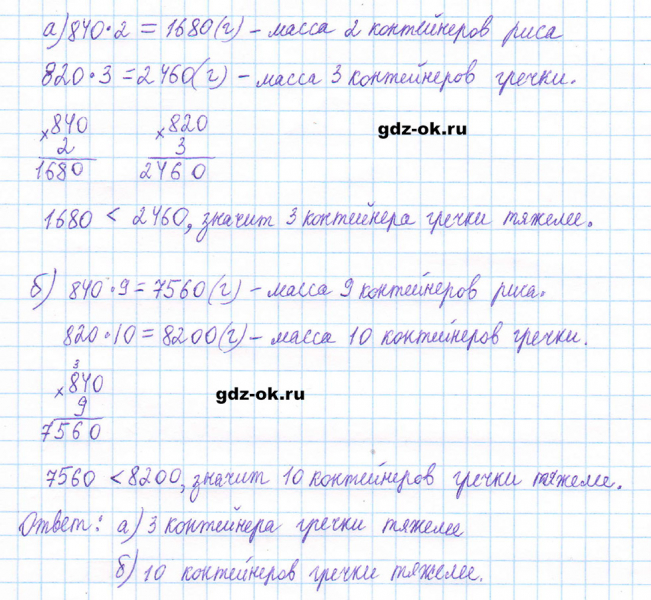 а) 840·2 = 1680 (г) – масса 2 контейнеров риса
820·3 = 2460 (г) – масса 3 контейнеров гречки.
×840 ×820
2 3
1680 2460
gdz-ok.ru
1680 < 2460, значит 3 контейнера гречки тяжелее.
б) 840·9 = 7560 (г) – масса 9 контейнеров риса.
820·10 = 8200 (г) – масса 10 контейнеров гречки.
3
×840
9
7560
gdz-ok.ru
7560 < 8200, значит 10 контейнеров гречки тяжелее.
Ответ: а) 3 контейнера гречки тяжелее
б) 10 контейнеров гречки тяжелее.